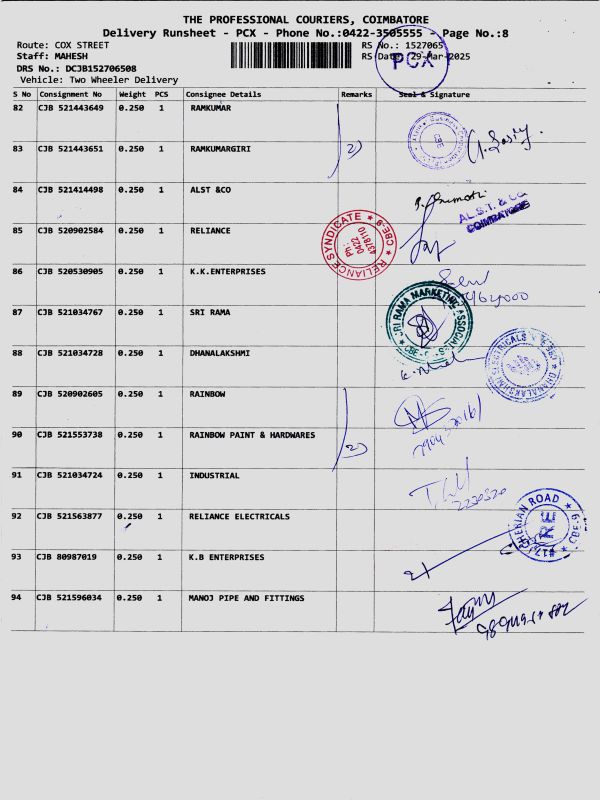 THE PROFESSIONAL COURIERS, COIMBATORE
Delivery Runsheet - PCX - Phone No.:0422-3505555 - Page No.:8
Route: COX STREET RS No.: 1527065
Staff: MAHESH RS Date: 29-Mar-2025
DRS No.: DCJB152706508
Vehicle: Two Wheeler Delivery
PCX
S No Consignment No Weight PCS Consignee Details Remarks Seal & Signature
82 CJB 521443649 0.250 1 RAMKUMAR
83 CJB 521443651 0.250 1 RAMKUMARGIRI 2)
84 CJB 521414498 0.250 1 ALST &CO
AL.S.T. & CO.
COIMBATORE
85 CJB 520902584 0.250 1 RELIANCE
RELIANCE SYNDICATE ★ CBE-9 ★
Ph : 0422 4378110
86 CJB 520530905 0.250 1 K.K.ENTERPRISES
87 CJB 521034767 0.250 1 SRI RAMA
SRI RAMA MARKETING
88 CJB 521034728 0.250 1 DHANALAKSHMI
DHANALAKSHMI ELECTRICALS
89 CJB 520902605 0.250 1 RAINBOW
90 CJB 521553738 0.250 1 RAINBOW PAINT & HARDWARES 2)
91 CJB 521034724 0.250 1 INDUSTRIAL
92 CJB 521563877 0.250 1 RELIANCE ELECTRICALS
ROAD ★ CBE-9 ★
RE
93 CJB 80987019 0.250 1 K.B ENTERPRISES
94 CJB 521596034 0.250 1 MANOJ PIPE AND FITTINGS